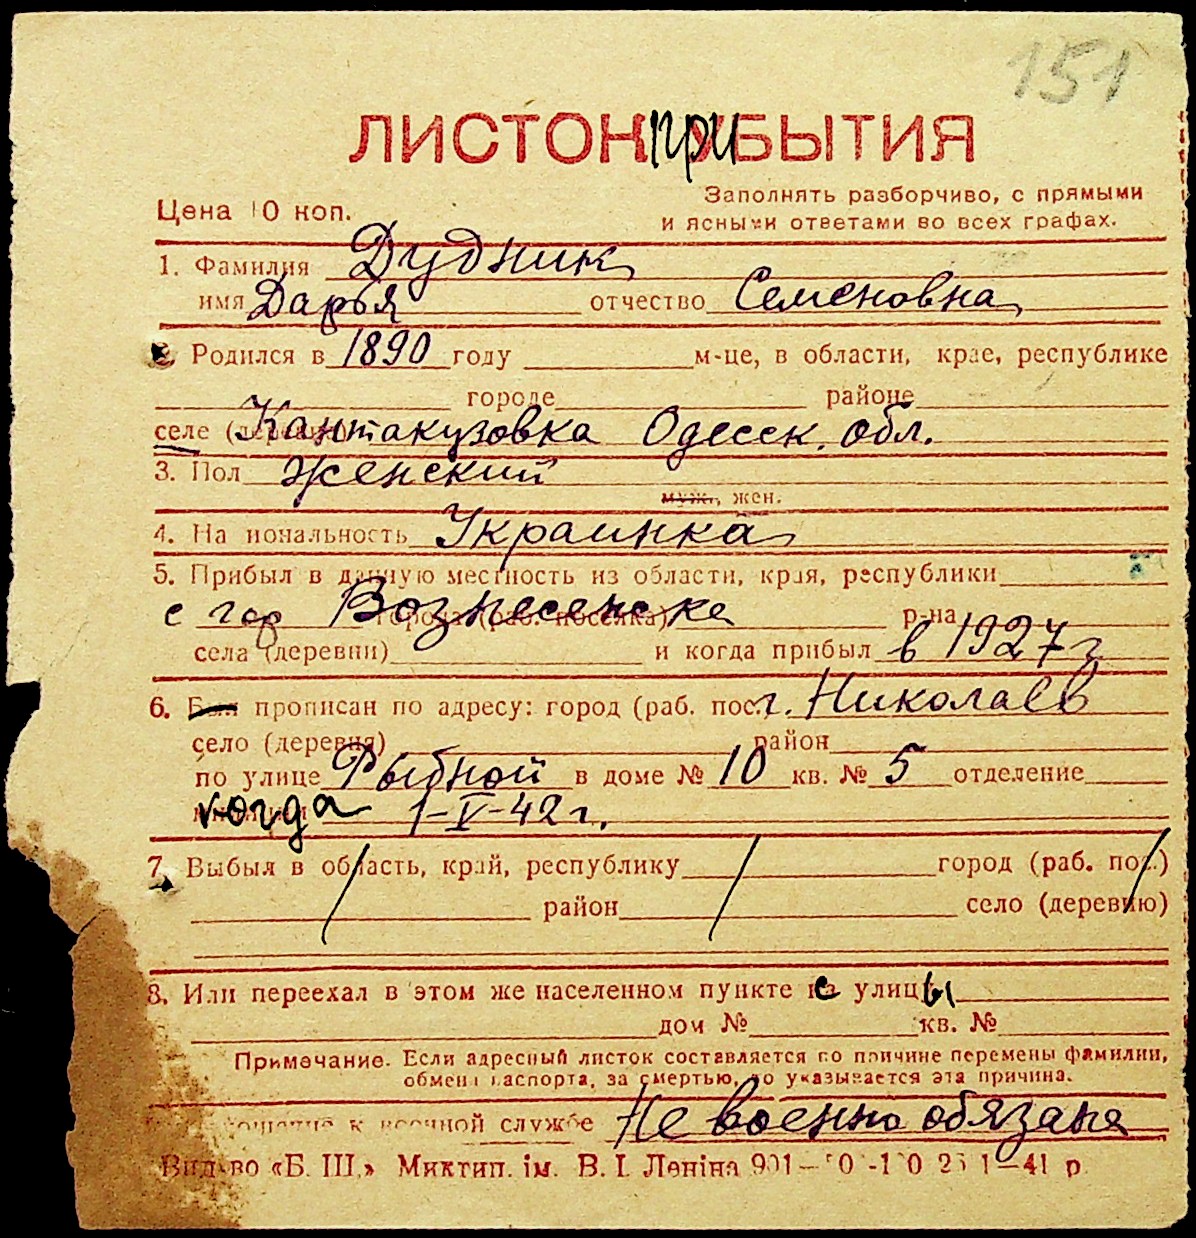 151
ЛИСТОК прибытия
Цена 10 коп.
Заполнять разборчиво, с прямыми
и ясными ответами во всех графах.
1. Фамилия Дудник
имя Дарья отчество Семеновна
2. Родился в 1890 году м-це, в области, крае, республике
городе районе
селе (деревне) Кантакузовка Одесск. обл.
3. Пол женский
муж., жен.
4. Национальность Украинка
5. Прибыл в данную местность из области, края, республики
с гор Вознесенска города (раб. поселка) р-на
села (деревни) и когда прибыл в 1927 г
6. Был прописан по адресу: город (раб. пос. г. Николаев
село (деревня) район
по улице Рыбной в доме № 10 кв. № 5 отделение
когда 1-V-42 г.
7. Выбыл в область, край, республику город (раб. пос.)
район село (деревню)
8. Или переехал в этом же населенном пункте с улицы
дом № кв. №
Примечание. Если адресный листок составляется по причине перемены фамилии,
обмена паспорта, за смертью, то указывается эта причина.
к военной службе Не военно обязана
Вид-во «Б. Ш.» Миктип. ім. В. І. Леніна 1—41 р.